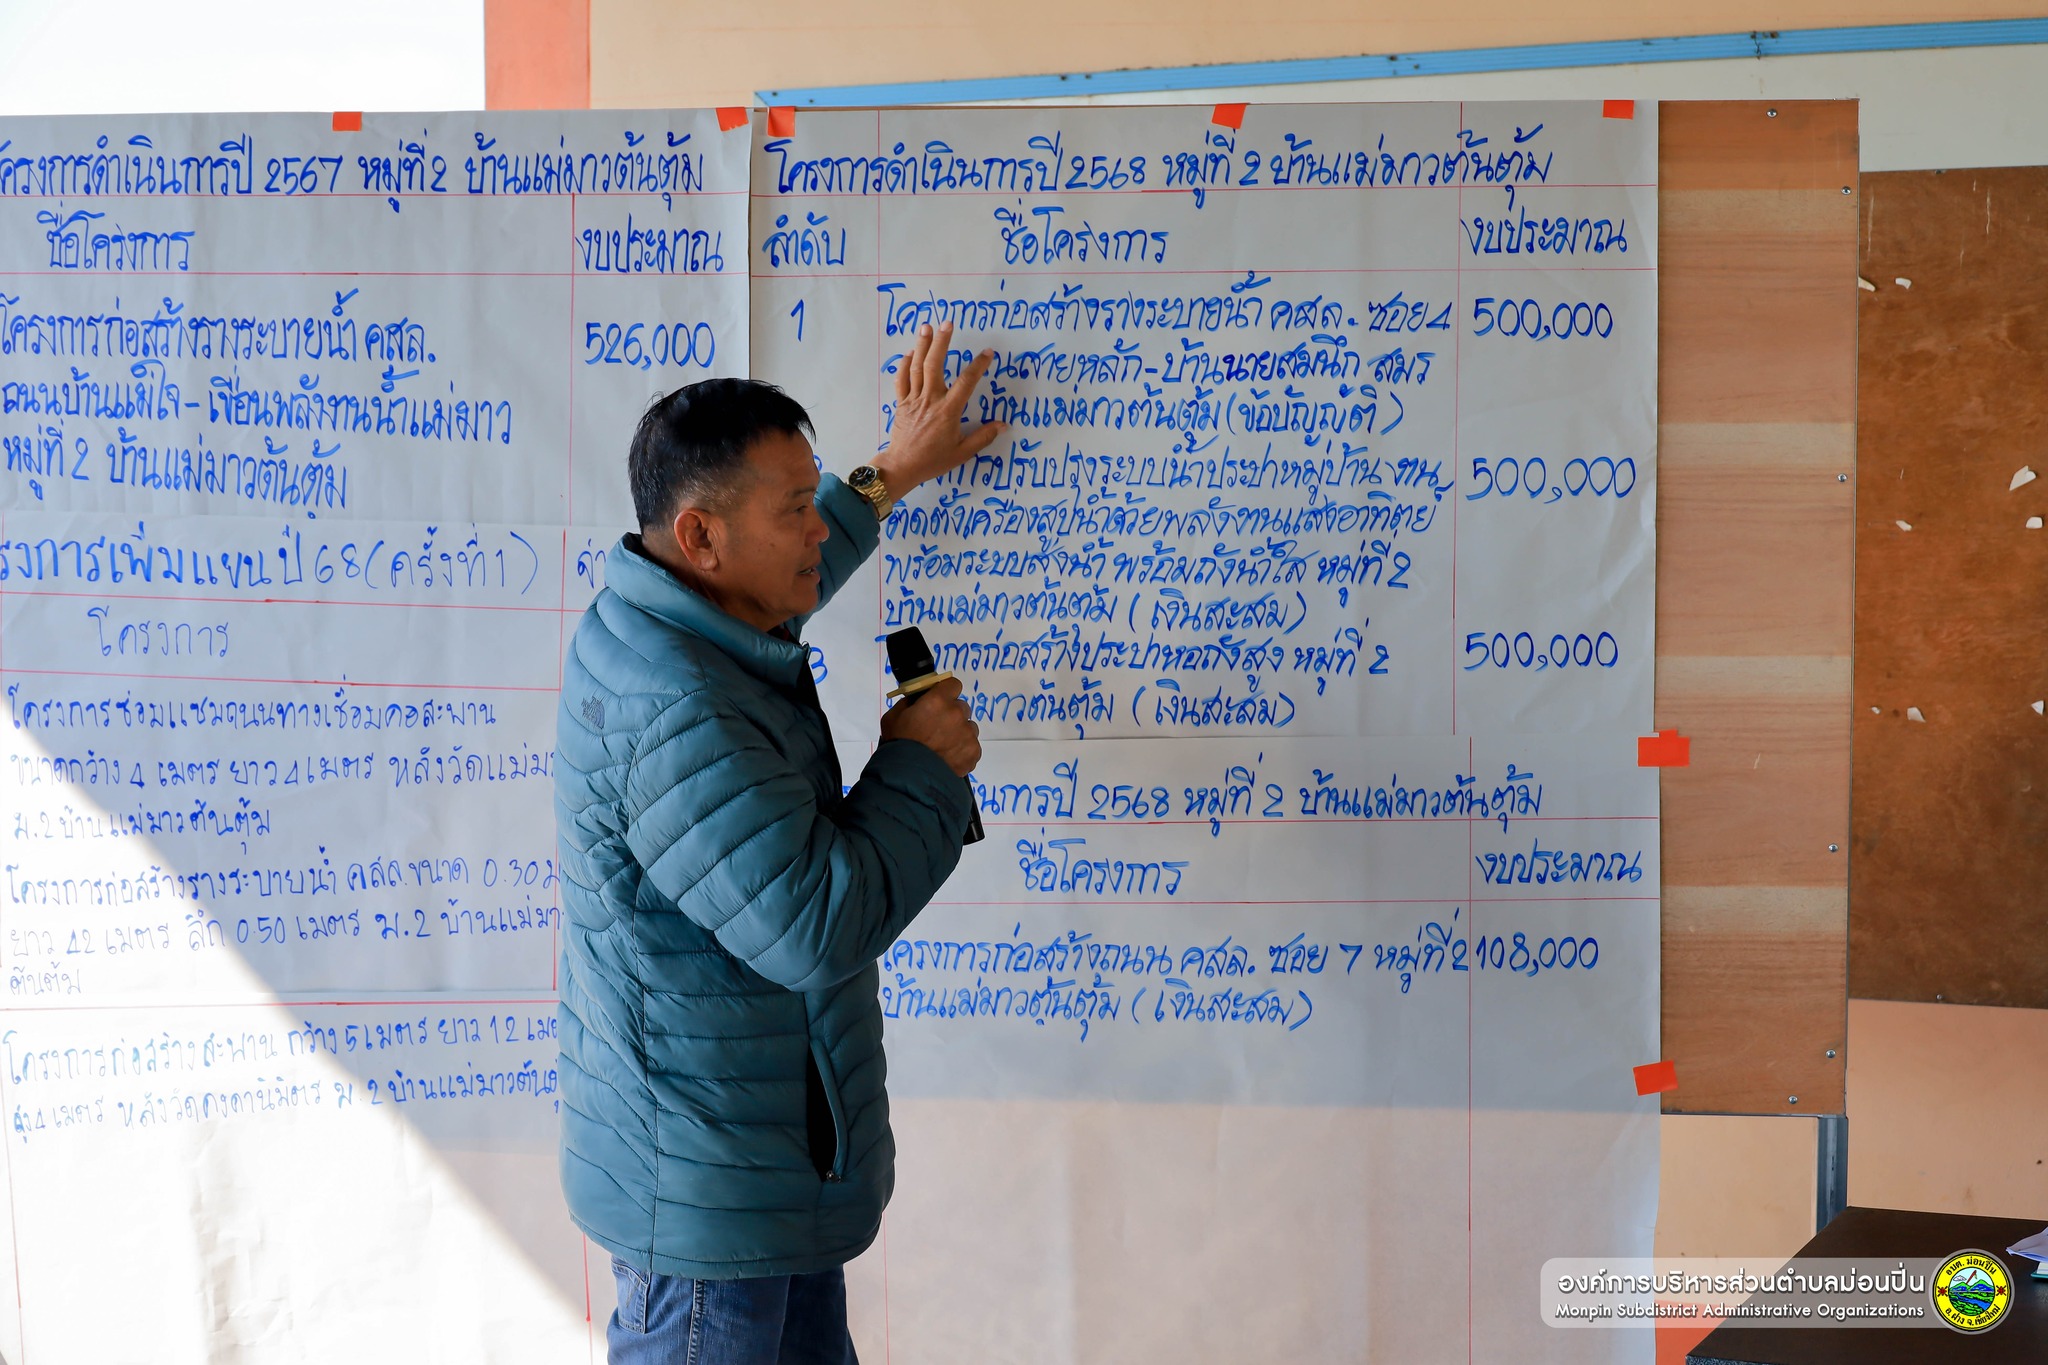 โครงการดำเนินการปี 2567 หมู่ที่ 2 บ้านแม่มาวต้นตุ้ม
ชื่อโครงการ งบประมาณ
โครงการก่อสร้างรางระบายน้ำ คสล. 526,000
ถนนบ้านแม่ใจ - เขื่อนพลังงานน้ำแม่มาว
หมู่ที่ 2 บ้านแม่มาวต้นตุ้ม
โครงการเพิ่มแผน ปี 68 (ครั้งที่ 1)
โครงการ
โครงการซ่อมแซมถนนทางเชื่อมคอสะพาน
ขนาดกว้าง 4 เมตร ยาว 4 เมตร หลังวัดแม่มา
ม.2 บ้านแม่มาวต้นตุ้ม
โครงการก่อสร้างรางระบายน้ำ คสล. ขนาด 0.30 ม
ยาว 42 เมตร ลึก 0.50 เมตร ม.2 บ้านแม่มา
ต้นตุ้ม
โครงการก่อสร้างสะพาน กว้าง 5 เมตร ยาว 12 เมต
สูง 4 เมตร หลังวัดคงคานิมิตร ม.2 บ้านแม่มาวต้นตุ
โครงการดำเนินการปี 2568 หมู่ที่ 2 บ้านแม่มาวต้นตุ้ม
ลำดับ ชื่อโครงการ งบประมาณ
1 โครงการก่อสร้างรางระบายน้ำ คสล. ซอย 4 500,000
ถนนสายหลัก - บ้านนายสมนึก สมร
บ้านแม่มาวต้นตุ้ม (ข้อบัญญัติ)
โครงการปรับปรุงระบบน้ำประปาหมู่บ้าน งาน 500,000
ติดตั้งเครื่องสูบน้ำด้วยพลังงานแสงอาทิตย์
พร้อมระบบส่งน้ำ พร้อมถังน้ำใส หมู่ที่ 2
บ้านแม่มาวต้นตุ้ม (เงินสะสม)
3 โครงการก่อสร้างประปาหอถังสูง หมู่ที่ 2 500,000
แม่มาวต้นตุ้ม (เงินสะสม)
นินการปี 2568 หมู่ที่ 2 บ้านแม่มาวต้นตุ้ม
ชื่อโครงการ งบประมาณ
โครงการก่อสร้างถนน คสล. ซอย 7 หมู่ที่ 2 108,000
บ้านแม่มาวต้นตุ้ม (เงินสะสม)
องค์การบริหารส่วนตำบลม่อนปิ่น
Monpin Subdistrict Administrative Organizations
อบต. ม่อนปิ่น
อ.ฝาง จ.เชียงใหม่